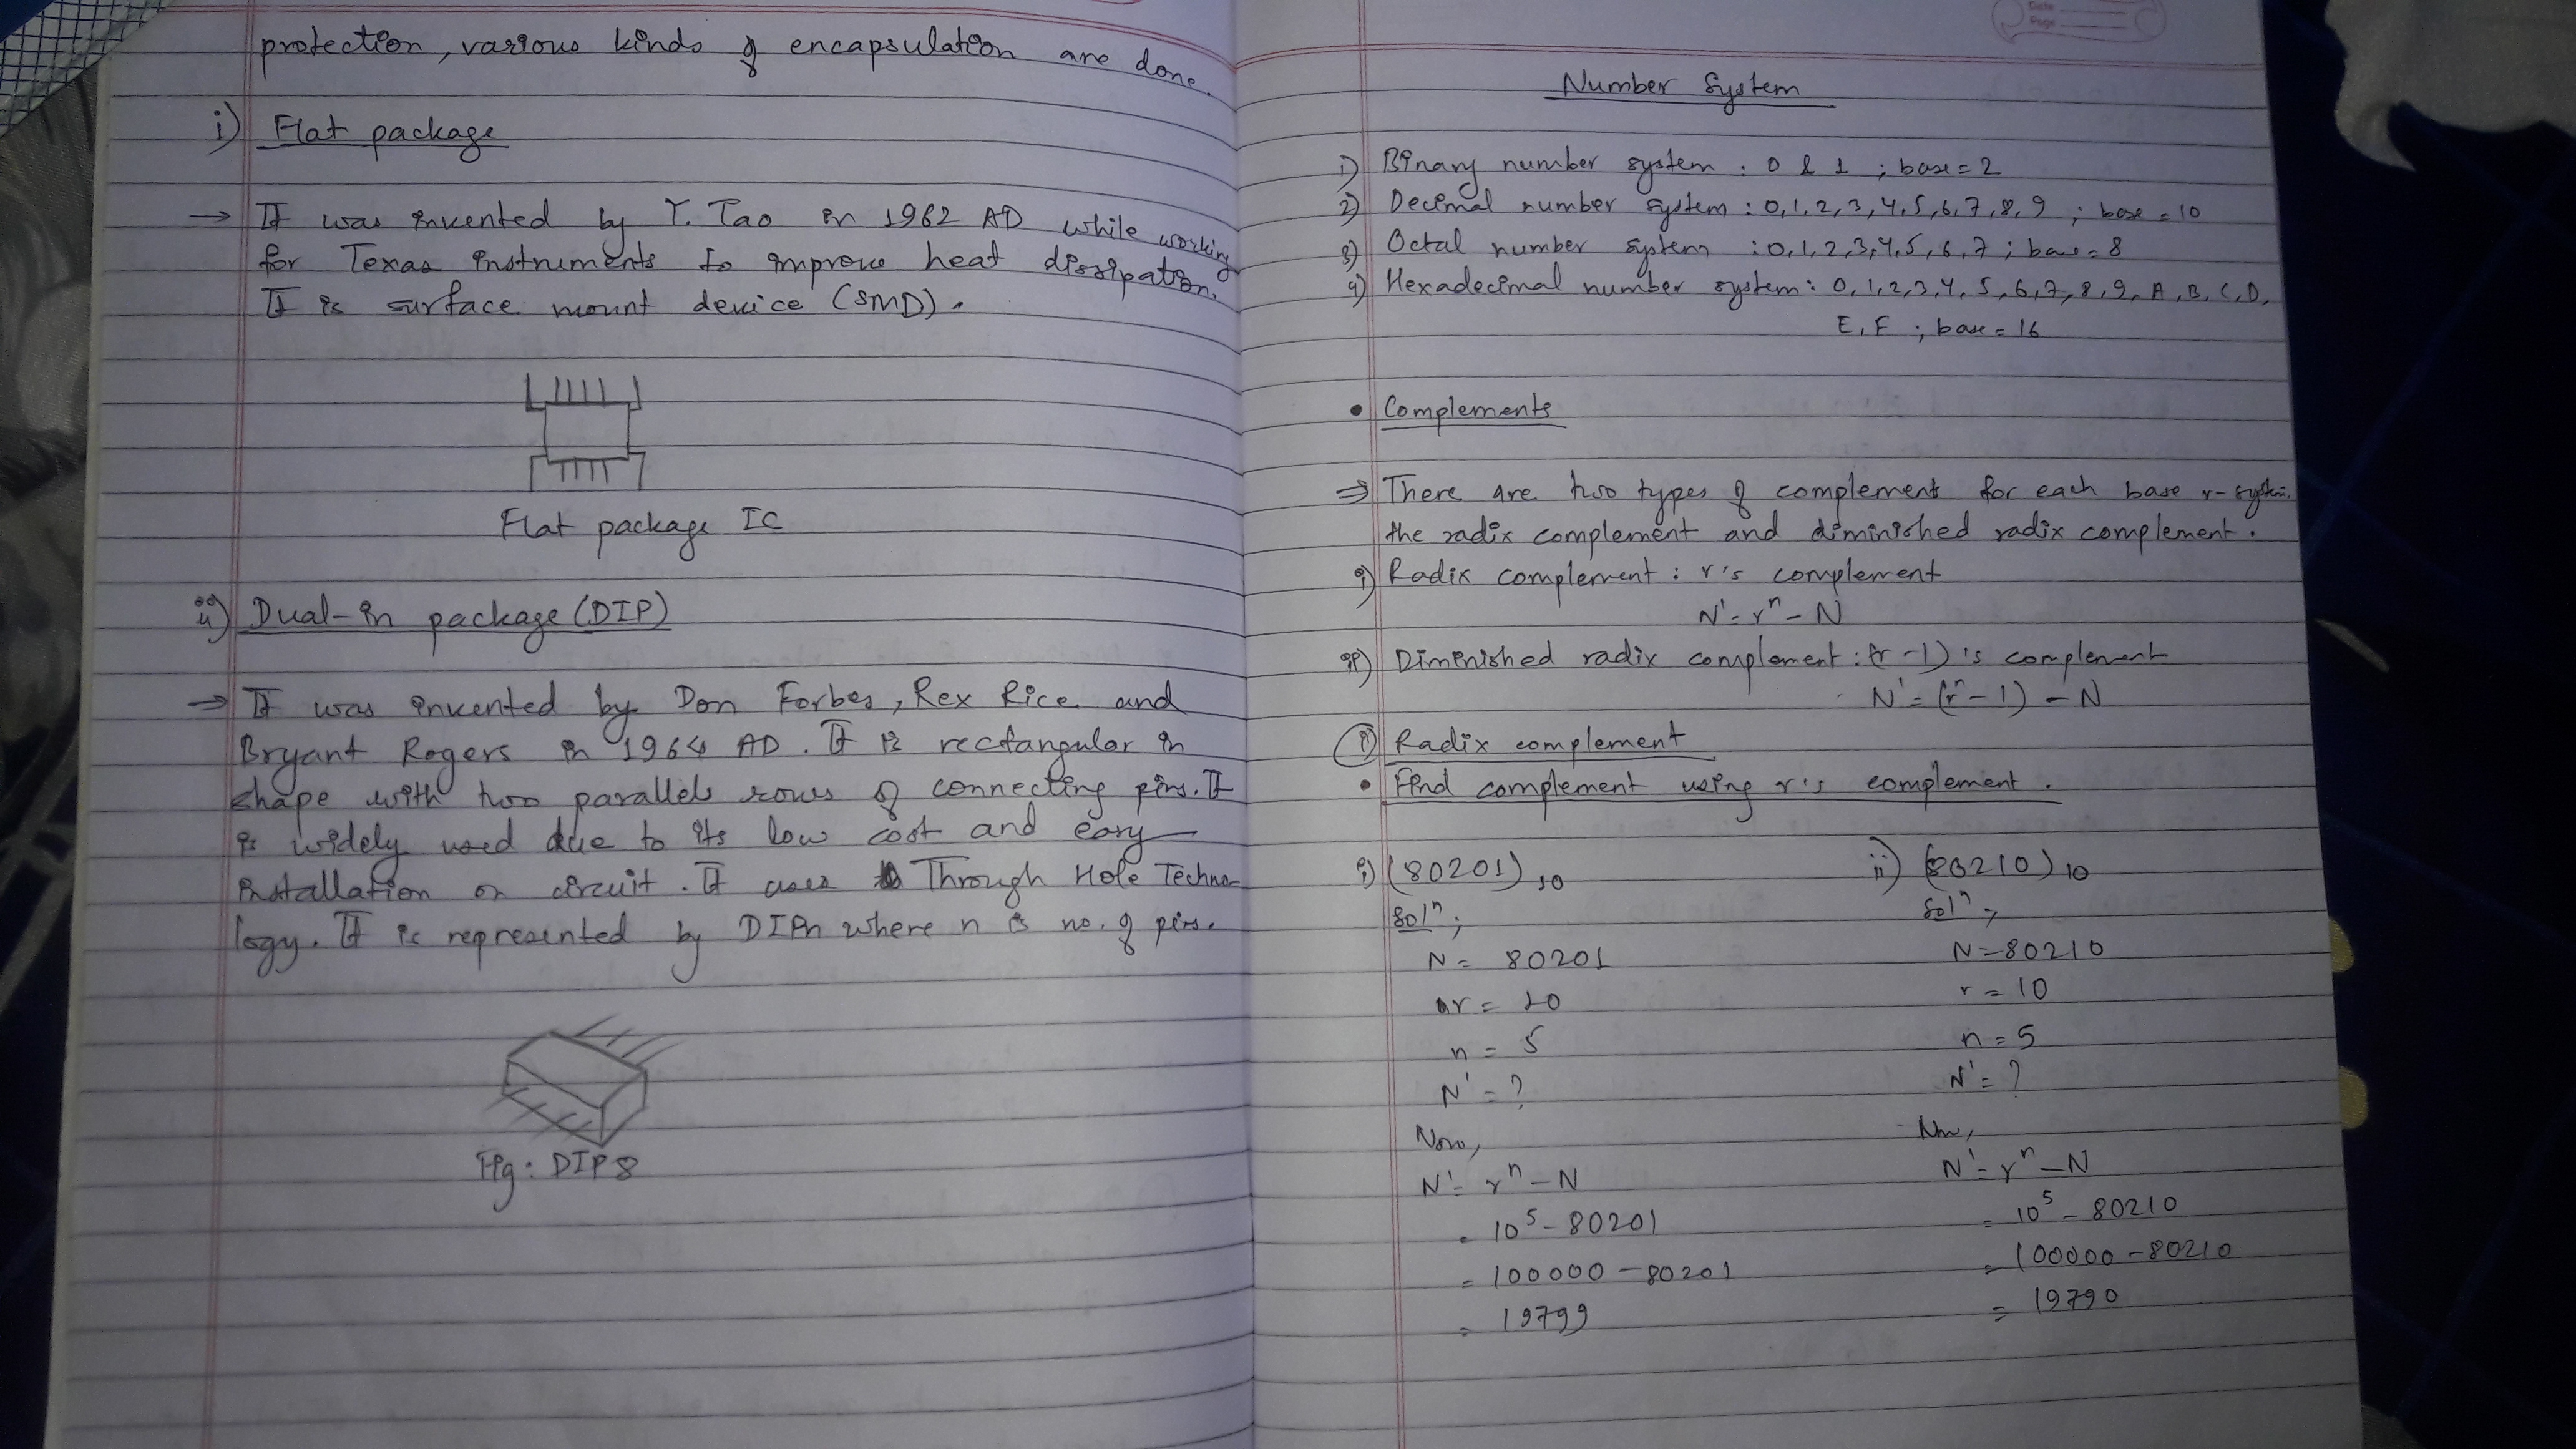 protection, various kinds of encapsulation are done.
i) Flat package
→ It was invented by Y. Tao in 1962 AD while working
for Texas instruments to improve heat dissipation.
It is surface mount device (SMD).
Flat package IC
ii) Dual-in package (DIP)
→ It was invented by Don Forbes, Rex Rice and
Bryant Rogers in 1964 AD. It is rectangular in
shape with two parallels rows of connecting pins. It
is widely used due to its low cost and easy
installation on circuit. It uses Through Hole Techno-
logy. It is represented by DIPn where n is no. of pins.
Fig: DIP 8
Number System
1) Binary number system : 0 & 1 ; base = 2
2) Decimal number system : 0,1,2,3,4,5,6,7,8,9 ; base = 10
3) Octal number system : 0,1,2,3,4,5,6,7 ; base = 8
4) Hexadecimal number system : 0,1,2,3,4,5,6,7,8,9,A,B,C,D,
E,F ; base = 16
• Complements
⇒ There are two types of complement for each base r-system.
the radix complement and diminished radix complement.
i) Radix complement : r's complement
N' = rⁿ - N
ii) Diminished radix complement : (r-1)'s complement
N' = (rⁿ - 1) - N
(i) Radix complement
• Find complement using r's complement.
i) (80201)₁₀
solⁿ;
N = 80201
r = 10
n = 5
N' = ?
Now,
N' = rⁿ - N
= 10⁵ - 80201
= 100000 - 80201
= 19799
ii) (80210)₁₀
solⁿ;
N = 80210
r = 10
n = 5
N' = ?
Now,
N' = rⁿ - N
= 10⁵ - 80210
= 100000 - 80210
= 19790